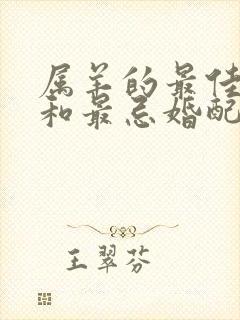 属羊的最佳
和最忌婚配
王翠芬